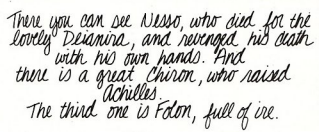 There you can see Nesso, who died for the
lovely Deianira, and revenged his death
with his own hands. And
there is a great Chiron, who raised
Achilles.
The third one is Folon, full of ire.